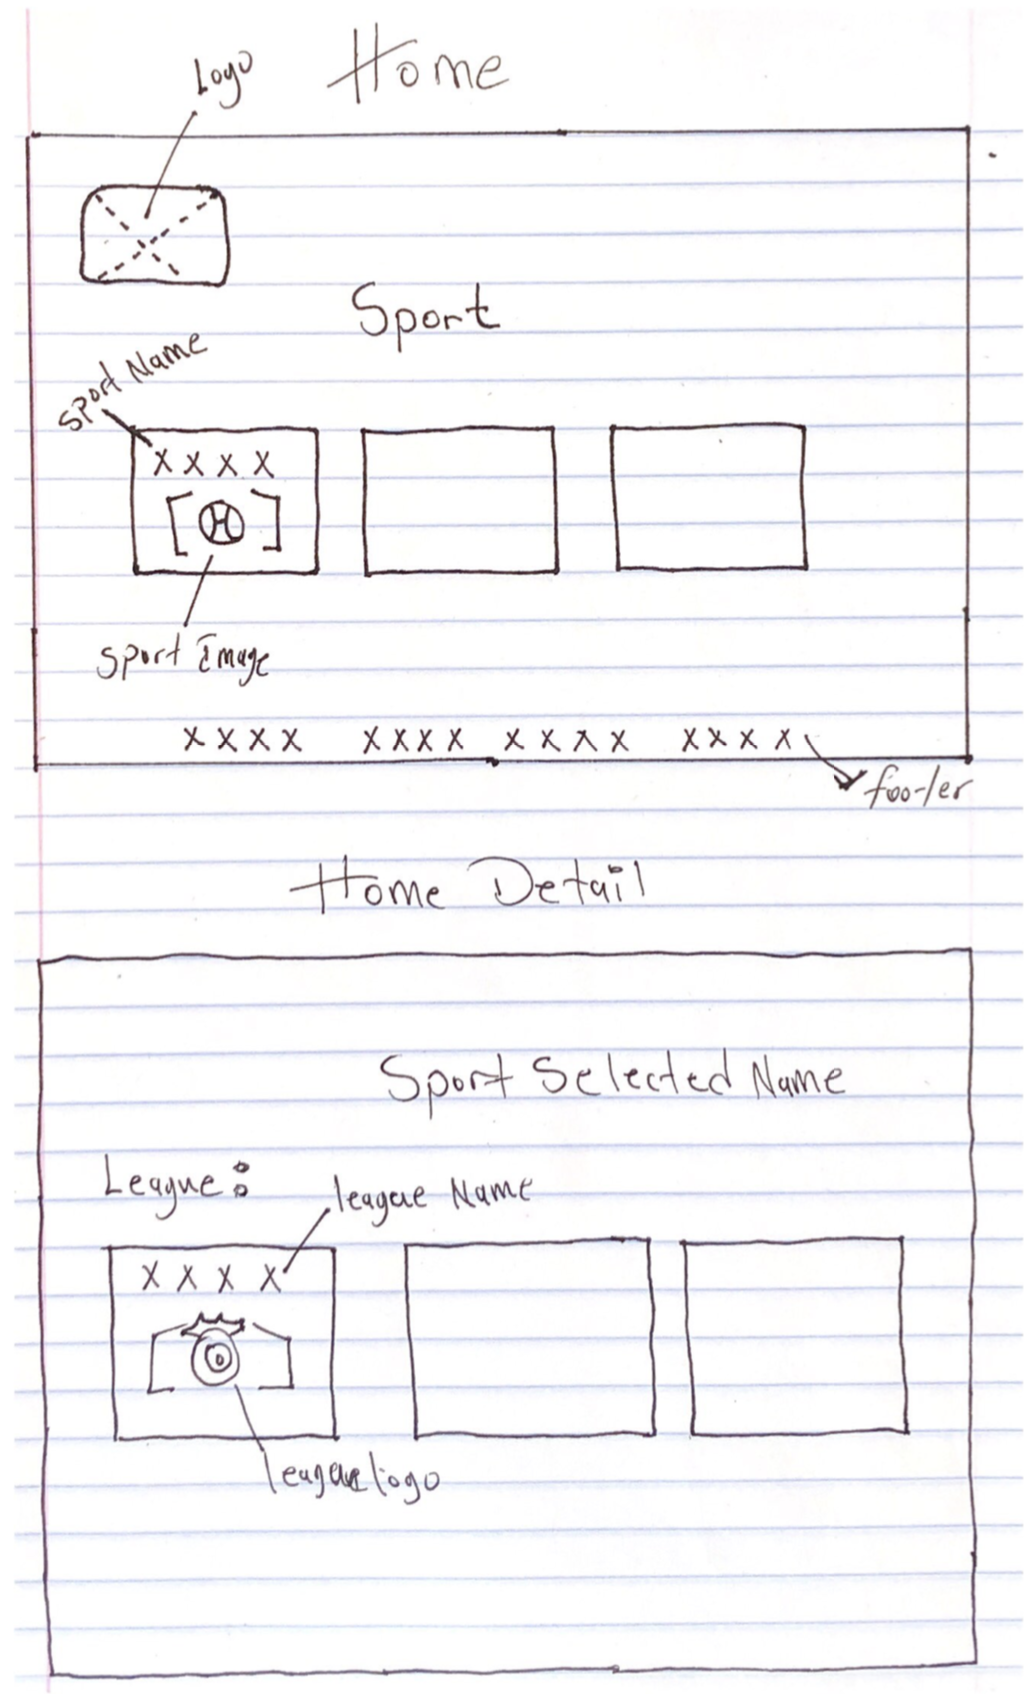 Home
Logo
Sport
Sport Name
X X X X
Sport Image
X X X X X X X X X X X X X X X X
footer
Home Detail
Sport Selected Name
League:
league Name
X X X X
league logo